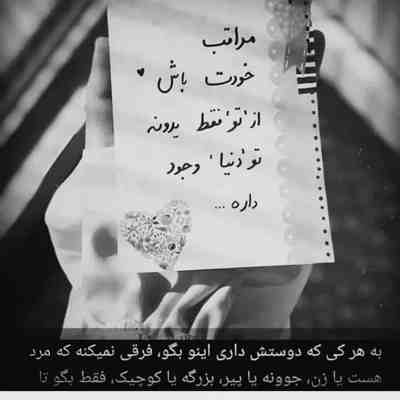 مراقب
خودت باش ♥
از "تو" فقط یدونه
تو "دنیا" وجود
داره ...
به هر کی که دوستش داری اینو بگو، فرقی نمیکنه که مرد
هست یا زن، جوونه یا پیر، بزرگه یا کوچیک، فقط بگو تا